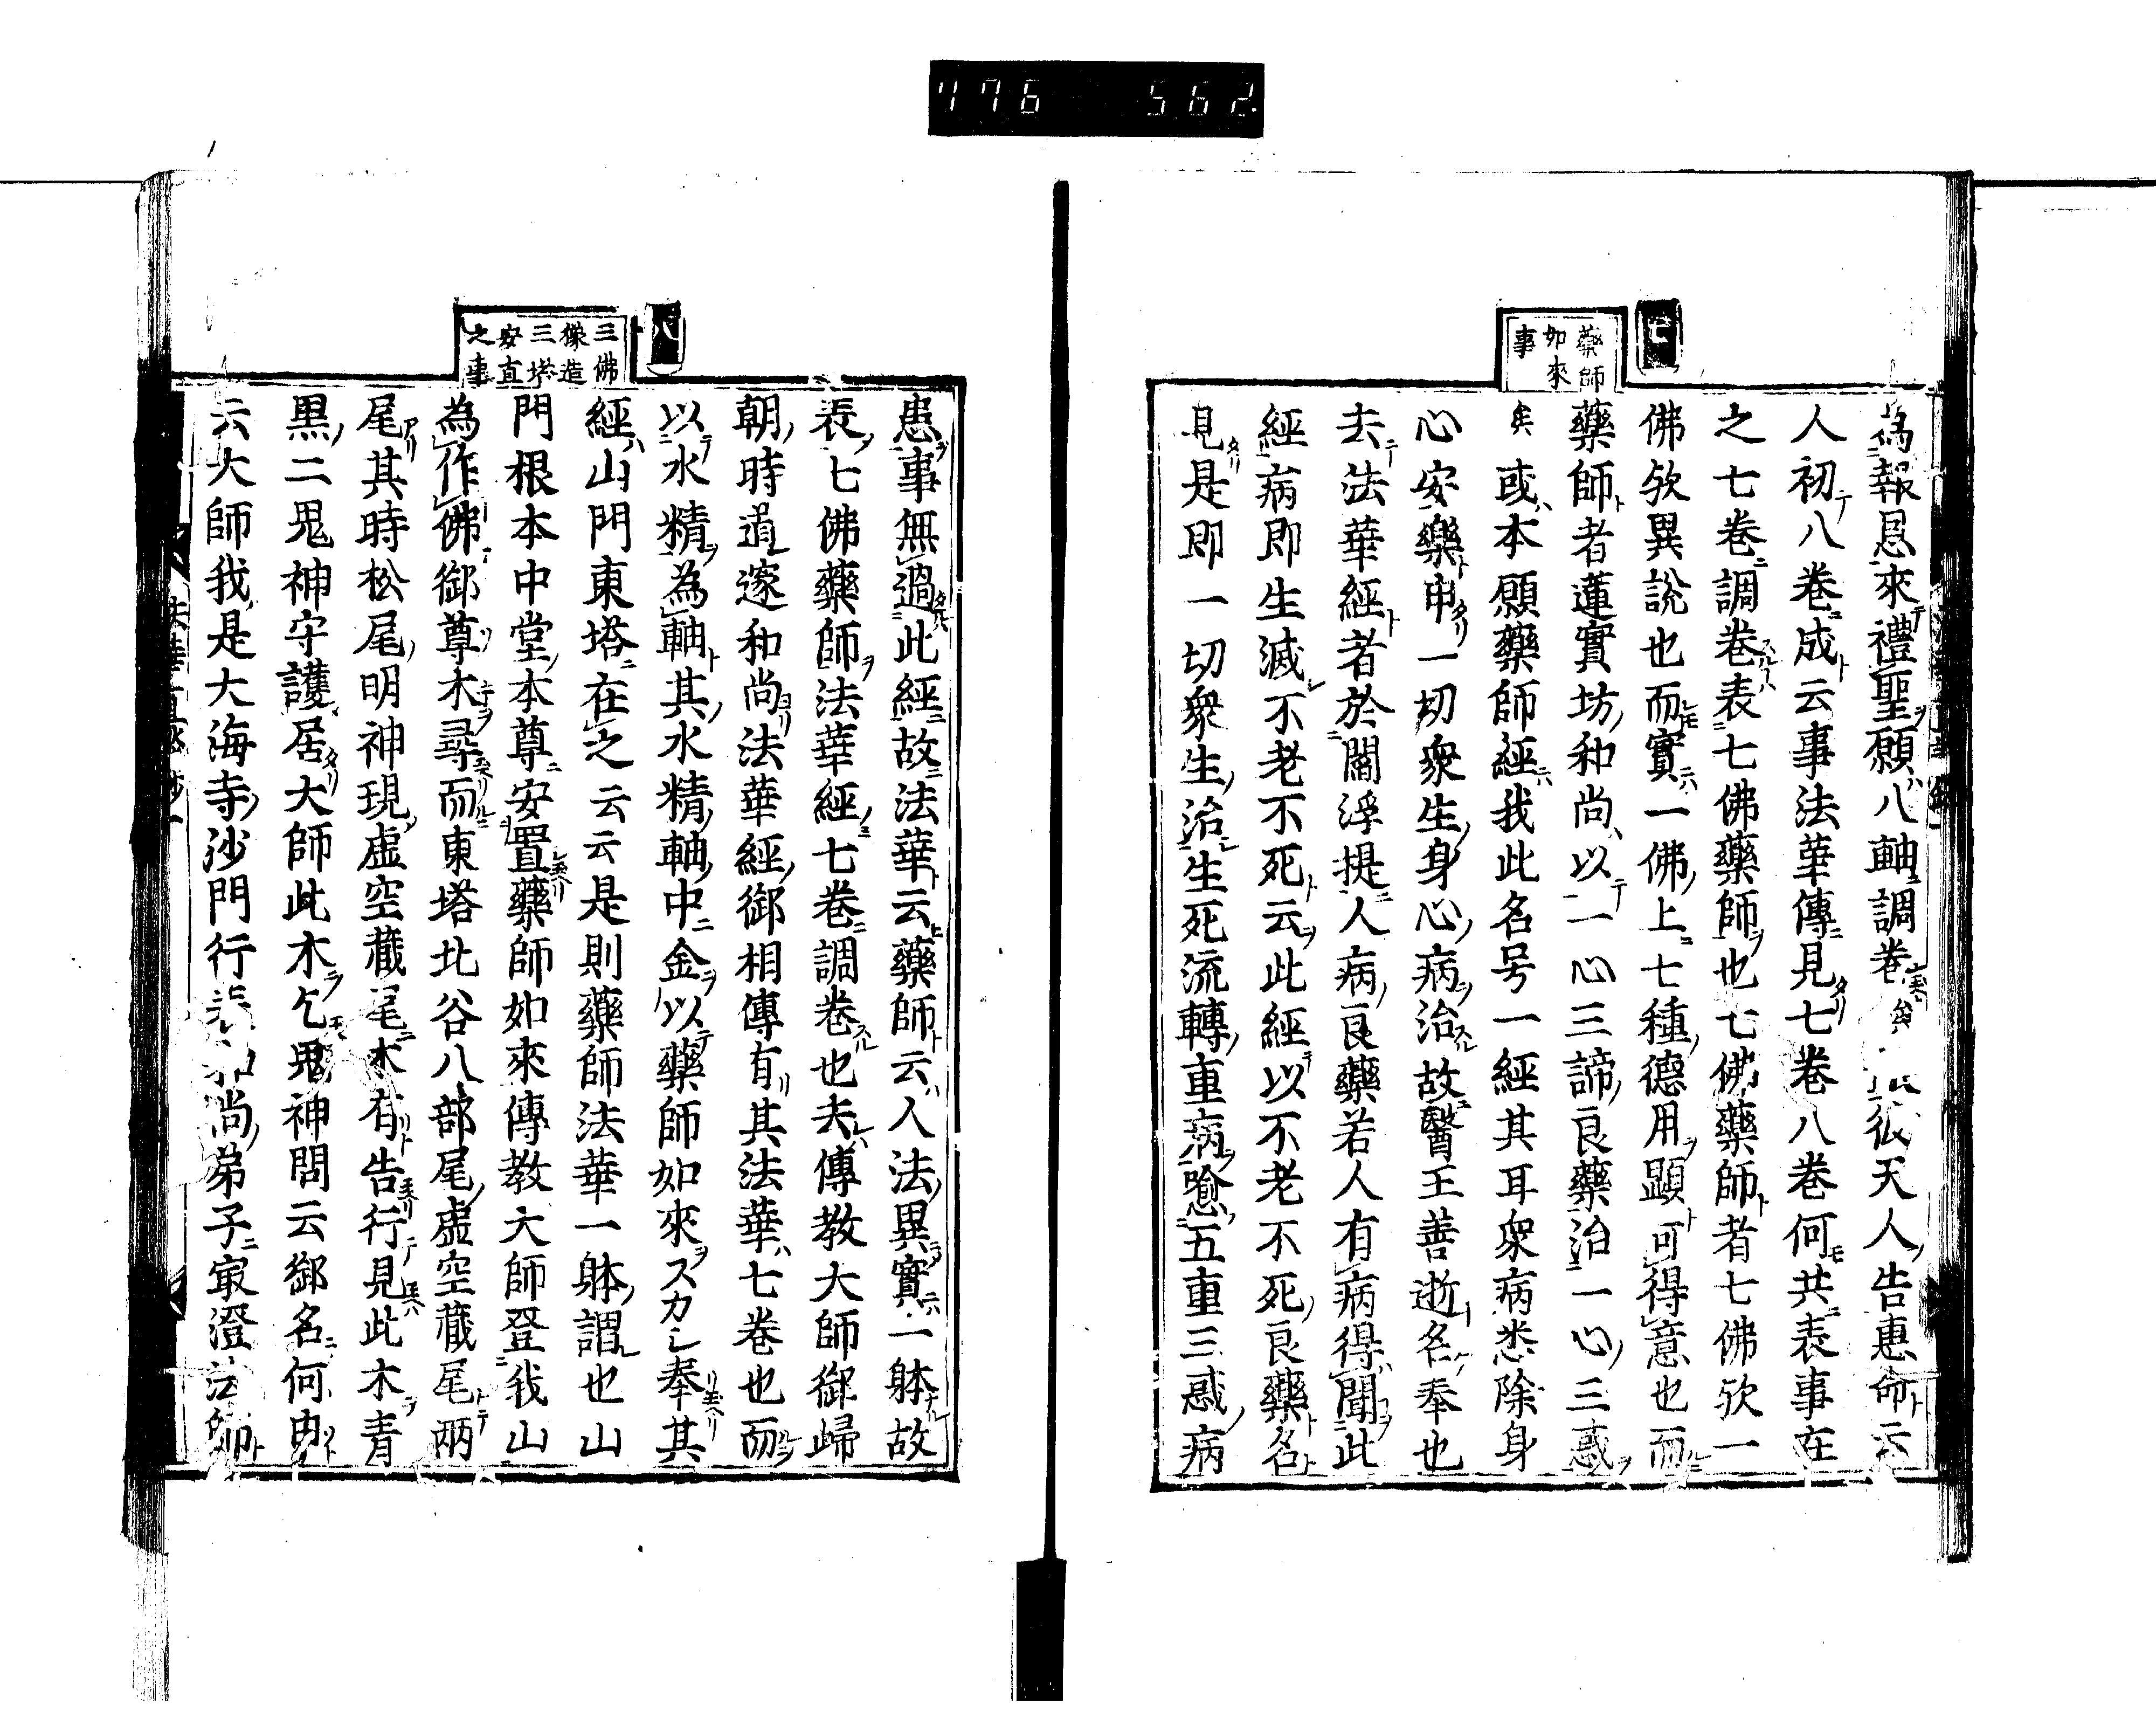 776 562
七
藥師
如來
事
爲報恩來禮聖願八軸調卷彼天人告惠命云
人初八卷成云事法華傳見七卷八卷何共表事在
之七卷調卷表七佛藥師也七佛藥師者七佛欤一
佛欤異説也而實一佛上七種德用顯可得意也而
藥師者蓮實坊和尚以一心三諦良藥治一心三惑
矣或本願藥師經我此名号一經其耳衆病悉除身
心安樂申一切衆生身心病治故醫王善逝名奉也
去法華經者於閻浮提人病良藥若人有病得聞此
經病即生滅不老不死云此經以不老不死良藥名
見是即一切衆生治生死流轉重病喩五重三惑病
八
三佛
像造
三塔
安直
之事
患事無過此經故法華云藥師云人法異實一躰故
表七佛藥師法華經七卷調卷也夫傳教大師御歸
朝時道邃和尚法華經御相傳有其法華七卷也而
以水精為軸其水精軸中金以藥師如來スカシ奉其
經山門東塔在之云云是則藥師法華一躰謂也山
門根本中堂本尊安置藥師如來傳教大師登我山
為作佛御尊木尋而東塔北谷八部尾虚空藏尾兩
尾其時松尾明神現虚空藏尾木有告行見此木青
黒二鬼神守護居大師此木乞鬼神問云御名何申
云大師我是大海寺沙門行表和尚弟子最澄法師